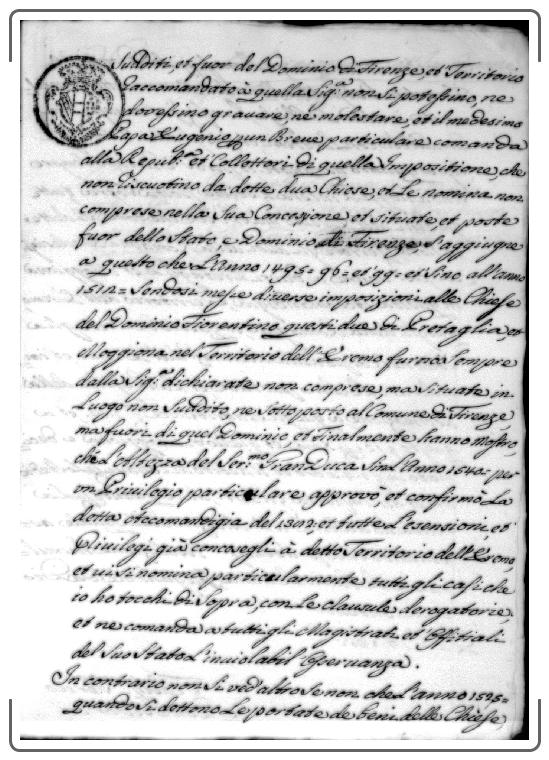 Sudditi, et fuor del Dominio di Firenze, et Territorio
Raccomandato à quella Sig.ª non si potessino, ne
dovessino gravare, ne molestare, et il medesimo
Papa Eugenio p un Breve particulare comanda
alla Repub.ª et Collettori di quella Impositione, che
non riscuotino da dette dua Chiese, et Le nomina non
comprese nella Sua Concessione et situate et poste
fuor dello Stato, e Dominio di Firenze, S'aggiugne
a questo che L'anno 1495= 96= et 99= et Sino all'anno
1512= Sendosi messe diverse imposizioni alle Chiese
del Dominio Fiorentino questi due di Pretaglia, et
Moggiona nel Territorio dell'Eremo furono Sempre
dalla Sig.ª dichiarate non comprese, ma Situate in
Luogo non Suddito, ne Sottoposto al Comune di Firenze,
ma fuori di quel Dominio, et Finalmente hanno mostro,
che L'Altezza del Ser.mo Gran Duca Sin L'Anno 1540= per
un Privilegio particulare approvò, et confirmò La
detta accomandigia del 1382, et tutte L'esensioni, et
Privilegi già concessegli à detto Territorio dell'Eremo,
et vi si nomina particularmente tutti gli casi che
io ho tocchi di Sopra, con Le clausule derogatorie,
et ne comanda a tutti gli Magistrati et Offitiali
del Suo Stato L'inviolabil Osservanza.
In contrario non Si ved'altro Se non che L'anno 1535=
quando Si dettono Le portate de beni delle Chiese,